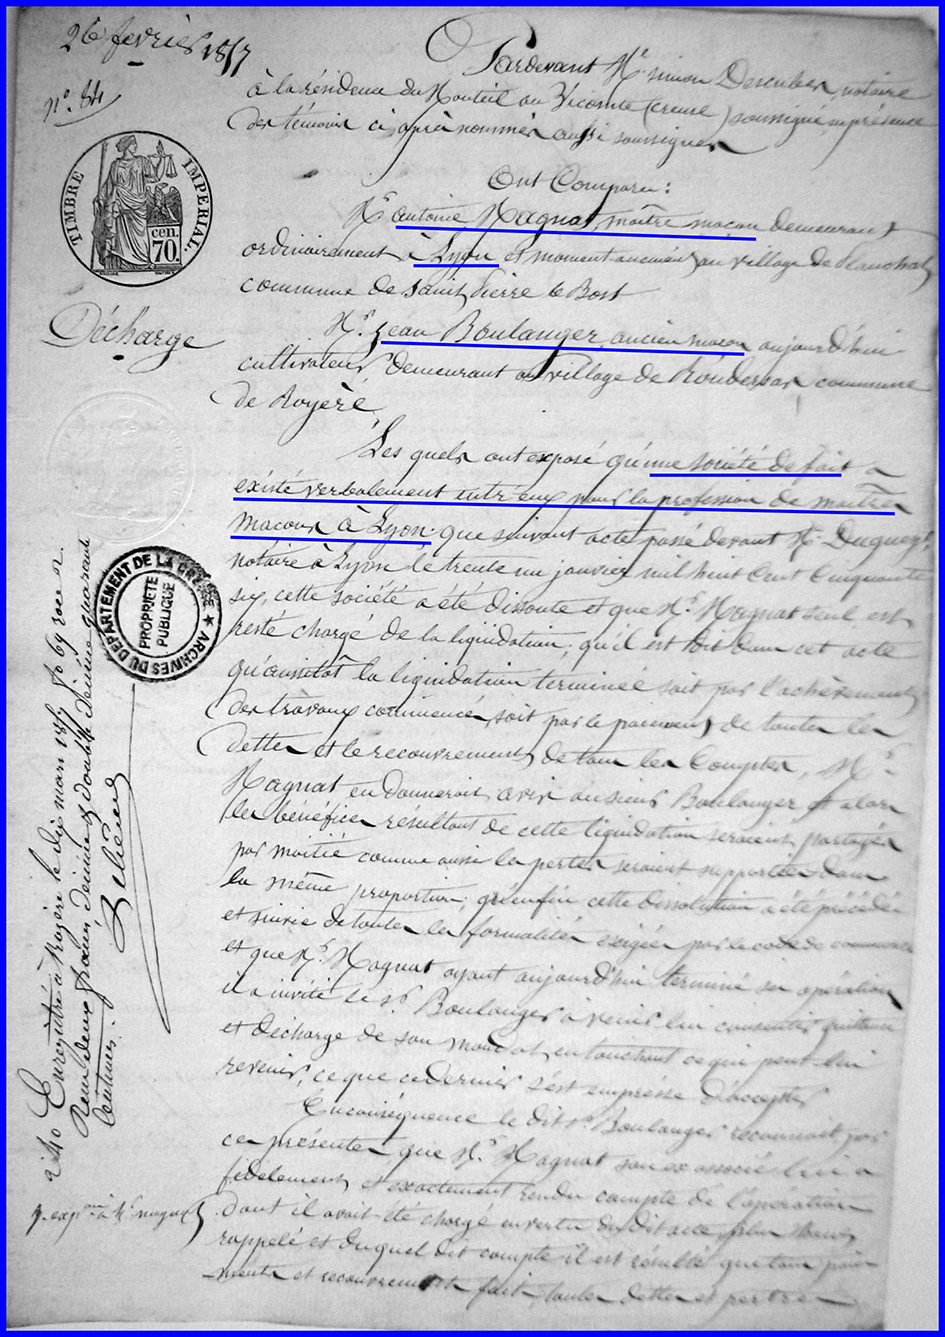 26 février 1857
n° 84
TIMBRE IMPERIAL
cen.
70.
Décharge
Pardevant Me simon Descubes, notaire
à la résidence du Monteil au Vicomte (creuse) soussigné, en présence
des témoins ci après nommés aussi soussignés
Ont Comparu:
Mr antoine Magnat, maître maçon demeurant
ordinairement à Lyon et momentanément au village de Planchat
commune de saint Pierre le Bost
Mr jean Boulanger, ancien maçon aujourd'hui
cultivateur demeurant au village de Roudersas commune
de Royère
Les quels ont exposé qu'une société de fait a
existé verbalement entr'eux pour la profession de maîtres
macons à Lyon; que suivant acte passé devant Me Dugueyt,
notaire à Lyon le trente un janvier mil huit Cent Cinquante
six, cette société a été dissoute et que Mr Magnat seul est
resté chargé de la liquidation; qu'il est dit dans cet acte
qu'aussitôt la liquidation terminée soit par l'achèvement
des travaux commencés, soit par le paiement de toutes les
dettes et le recouvrement de tous les Comptes, Mr
Magnat en donnerait avis au sieur Boulanger et alors
les bénéfices résultant de cette liquidation seraient partagés
par moitié comme aussi les pertes seraient supportées dans
la même proportion; qu'enfin cette dissolution a été précédée
et suivie de toutes les formalités exigées par le code de commerce
et que Mr Magnat ayant aujourd'hui terminé ses opérations
il a invité le sr Boulanger à venir lui consentir quittance
et décharge de son mandat en touchant ce qui peut lui
revenir, ce que ce dernier s'est empressé d'accepter
En conséquence le dit sr Boulanger reconnait par
ces présentes que Mr Magnat son ex associé lui a
fidèlement et exactement rendu compte de l'opération
dont il avait été chargé en vertu du dit acte plus haut
rappelé et duquel dit compte il est résulté que tous paie
ments et recouvrements faits, toutes dettes et pertes
ARCHIVES DU DEPARTEMENT DE LA CREUSE
PROPRIETE
PUBLIQUE
Enregistré à Royère le dix mars 1857 fo 69 Reçu
deux francs, décime et double décime quarante
centimes.